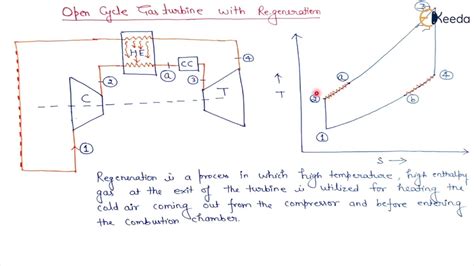 Open Cycle Gas turbine with Regeneration
Keeda
HE
CC
4
2
a
3
C
T
1
3
T
a
4
2
b
1
S
Regeneration is a process in which high temperature, high enthalpy
gas at the exit of the turbine is utilized for heating the
cold air coming out from the compressor and before entering
the combustion chamber.